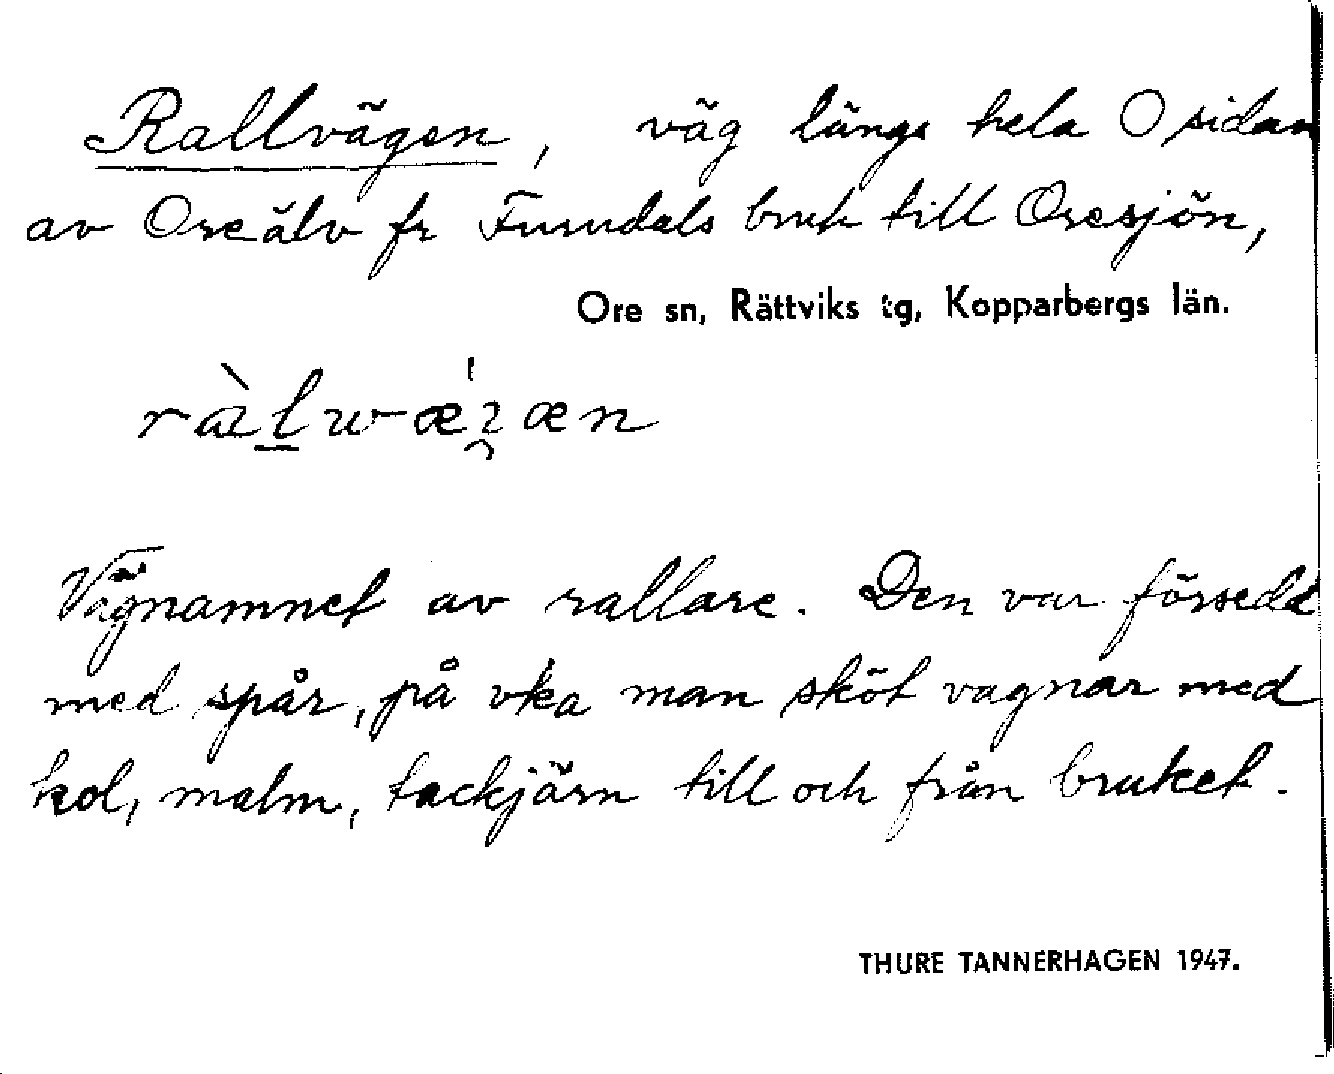 Rallvägen, väg längs hela O sidan
av Oreälv fr Furudals bruk till Oresjön,
Ore sn, Rättviks tg, Kopparbergs län.
Vägnamnet av rallare. Den var försedd
med spår, på vka man sköt vagnar med
kol, malm, tackjärn till och från bruket.
THURE TANNERHAGEN 1947.